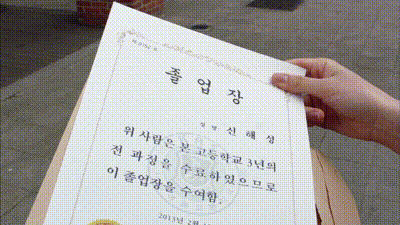 졸업장
성명 신해성
위 사람은 본 고등학교 3년의
전 과정을 수료하였으므로
이 졸업장을 수여함.
2013년 2월